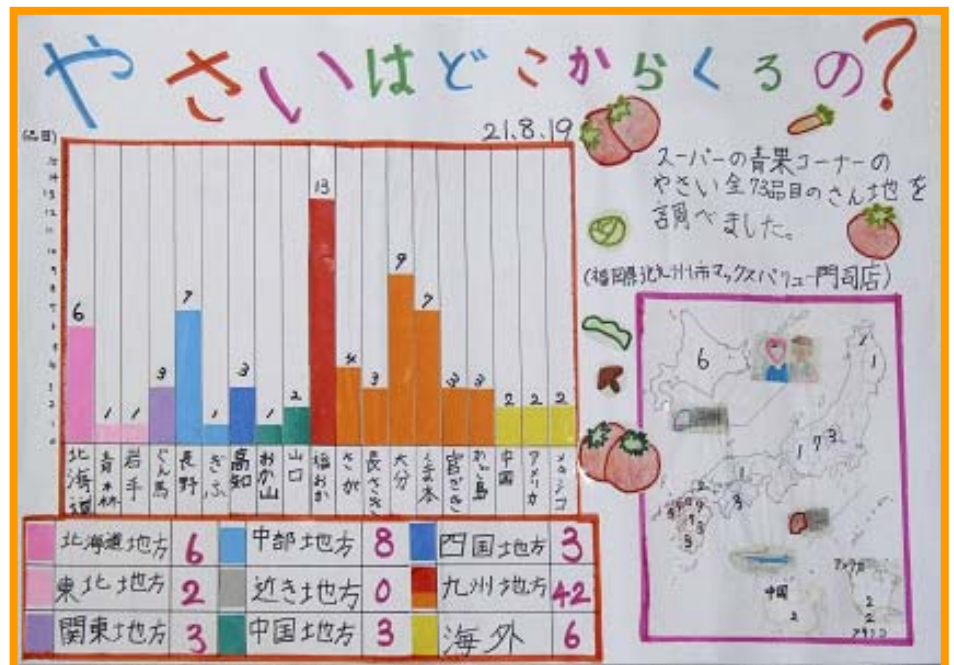 やさいはどこからくるの？
21.8.19
スーパーの青果コーナーの
やさい全73品目のさん地を
調べました。
(福岡県北九州市マックスバリュー門司店)
(品目)
15
14
13
12
11
10
9
8
7
6
5
4
3
2
1
0
6 1 1 3 7 1 3 1 2 13 4 3 9 7 3 3 2 2 2
北海道 青森 岩手 ぐん馬 長野 ぎふ 高知 おか山 山口 福おか さが 長さき 大分 くま本 宮ざき かご島 中国 アメリカ メキシコ
北海道地方 6 中部地方 8 四国地方 3
東北地方 2 近き地方 0 九州地方 42
関東地方 3 中国地方 3 海外 6
6
1
1 7 3
1
2
3
アメリカ
中国
2
2
2